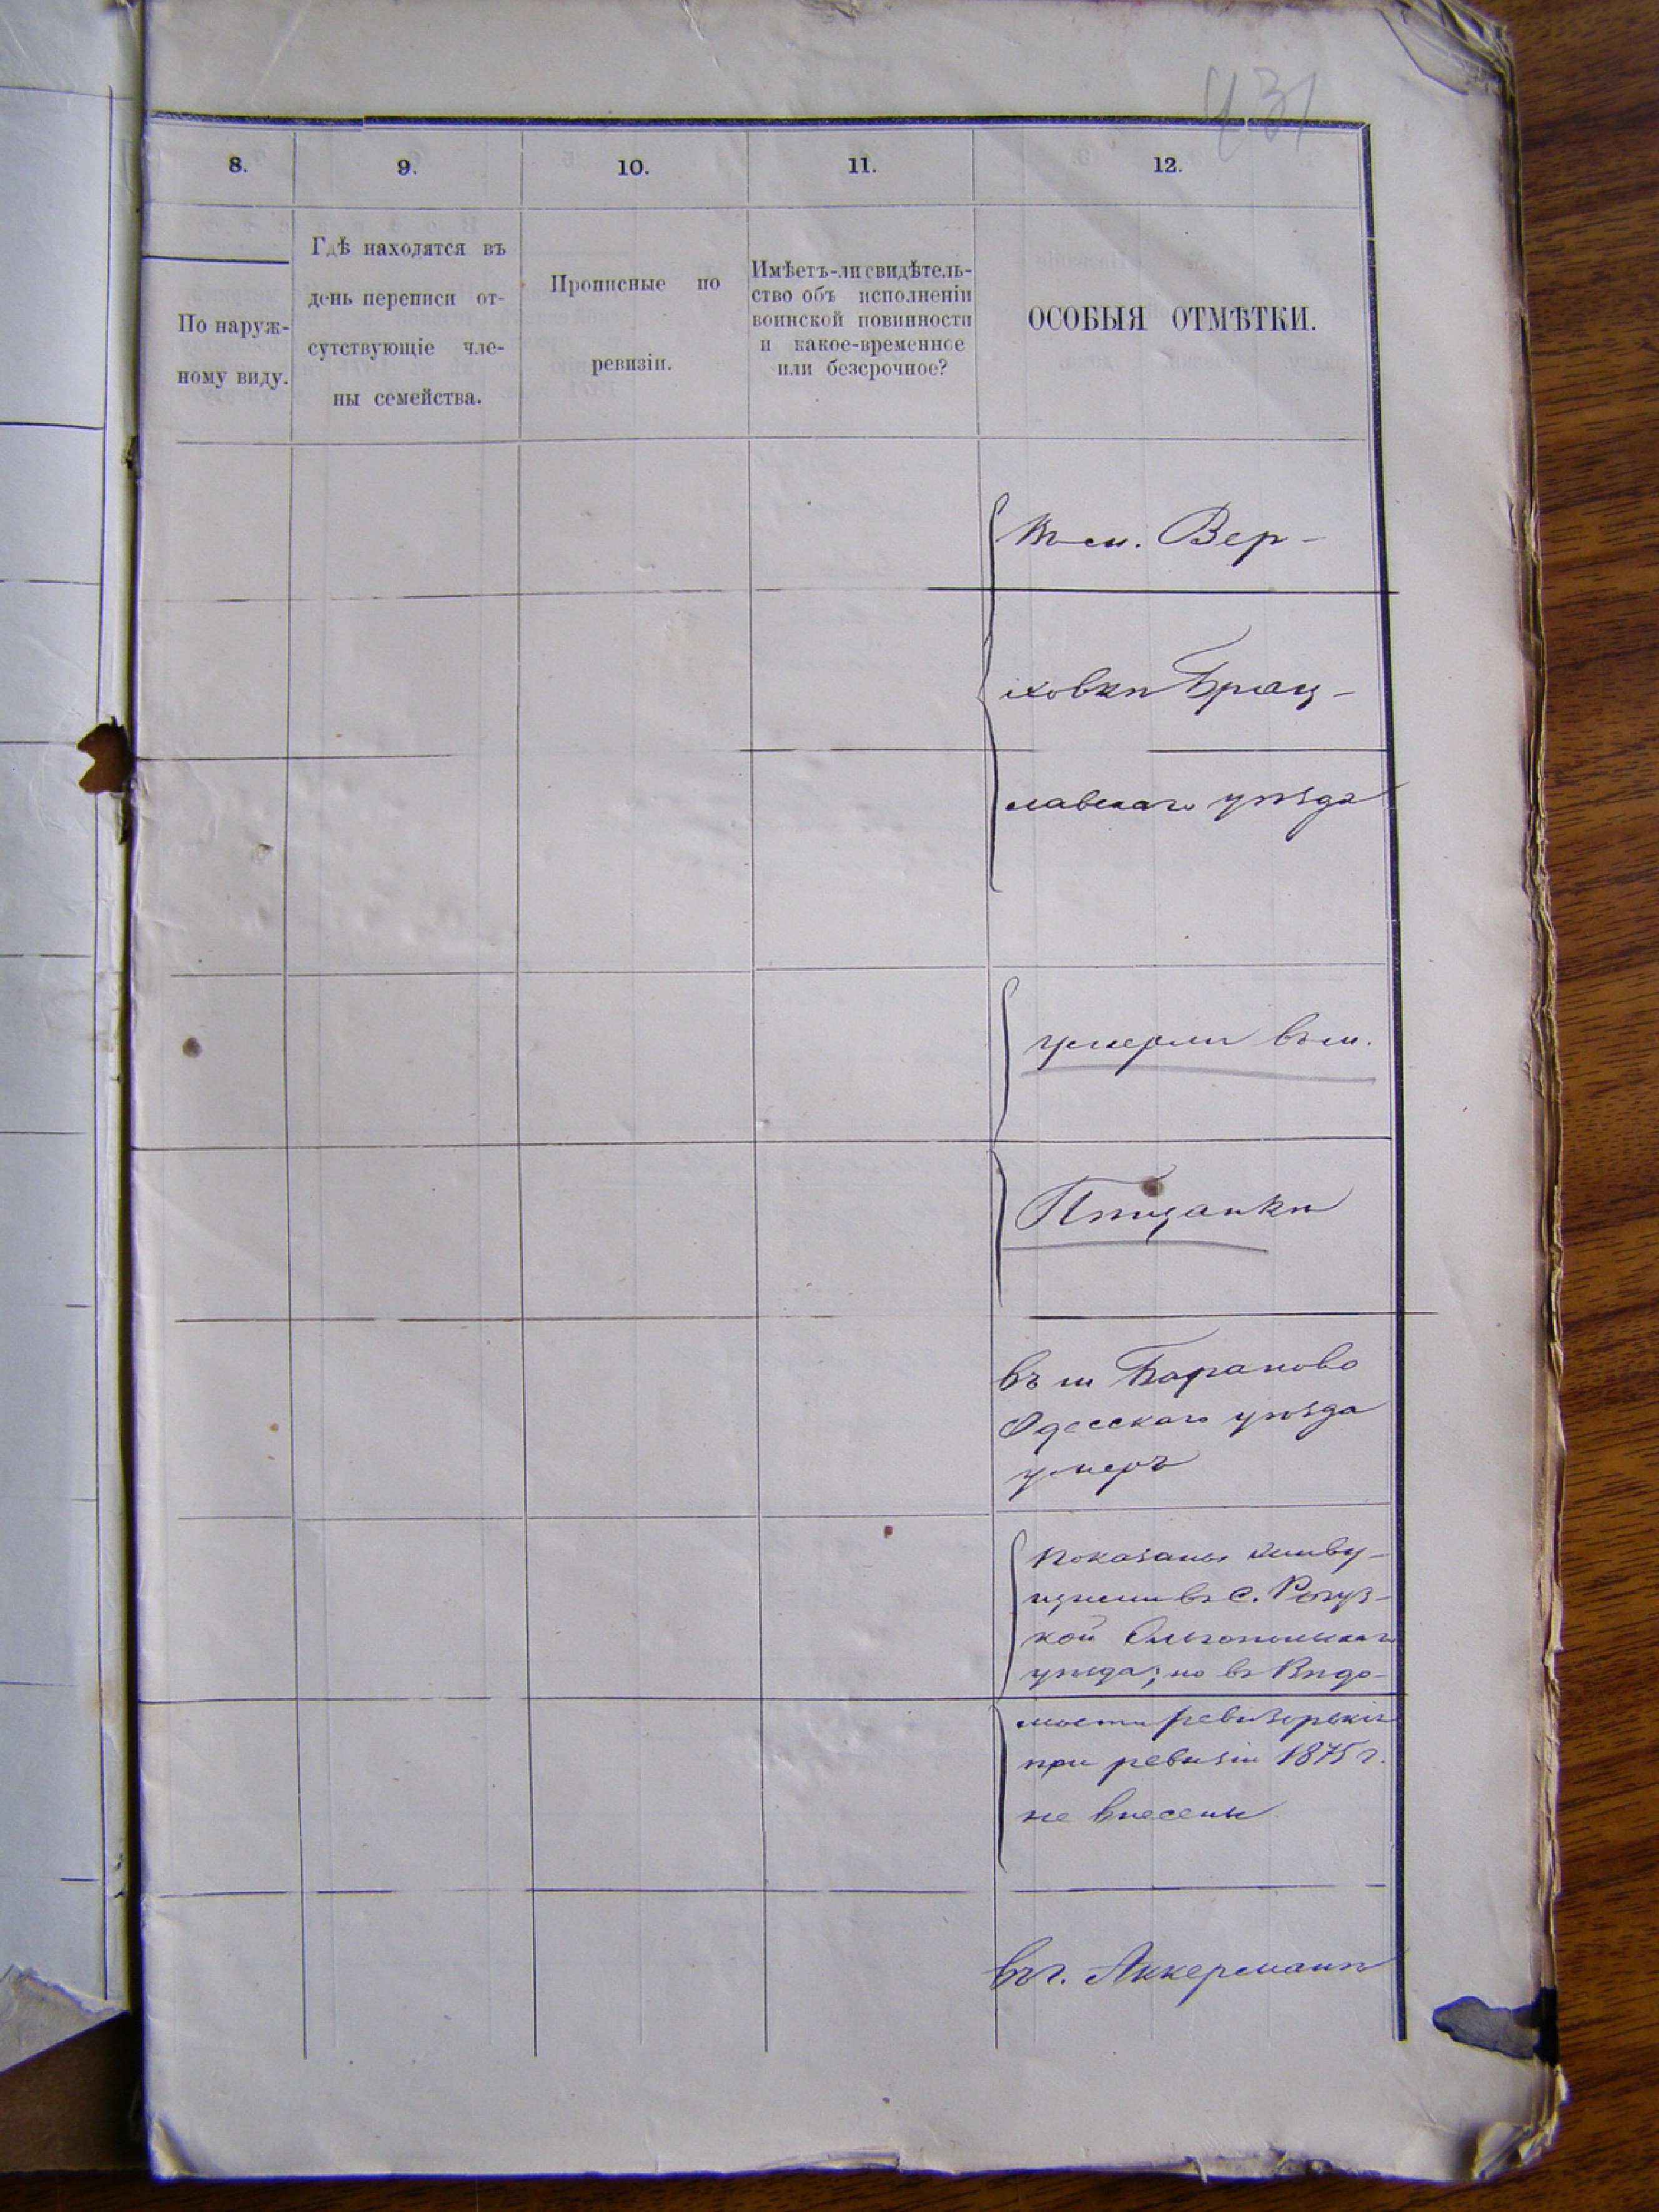 431
8.
9.
10.
11.
12.
По наруж-
ному виду.
Гдѣ находятся въ
день переписи от-
сутствующіе чле-
ны семейства.
Прописные по
ревизіи.
Имѣетъ-ли свидѣтель-
ство объ исполненіи
воинской повинности
и какое-временное
или безсрочное?
ОСОБЫЯ ОТМѢТКИ.
Въ м. Вер-
ховкѣ Брац-
лавскаго уѣзда
умерли въ м.
Пѣщанкѣ
въ м Бараново
Одесскаго уѣзда
умеръ
Показаны живу-
щими въ с. Рогуз-
кой Ольгопольскаго
уѣзда; но въ Вѣдо-
мости ревизорскія
при ревизіи 1875 г.
не внесены
въ г. Аккерманѣ